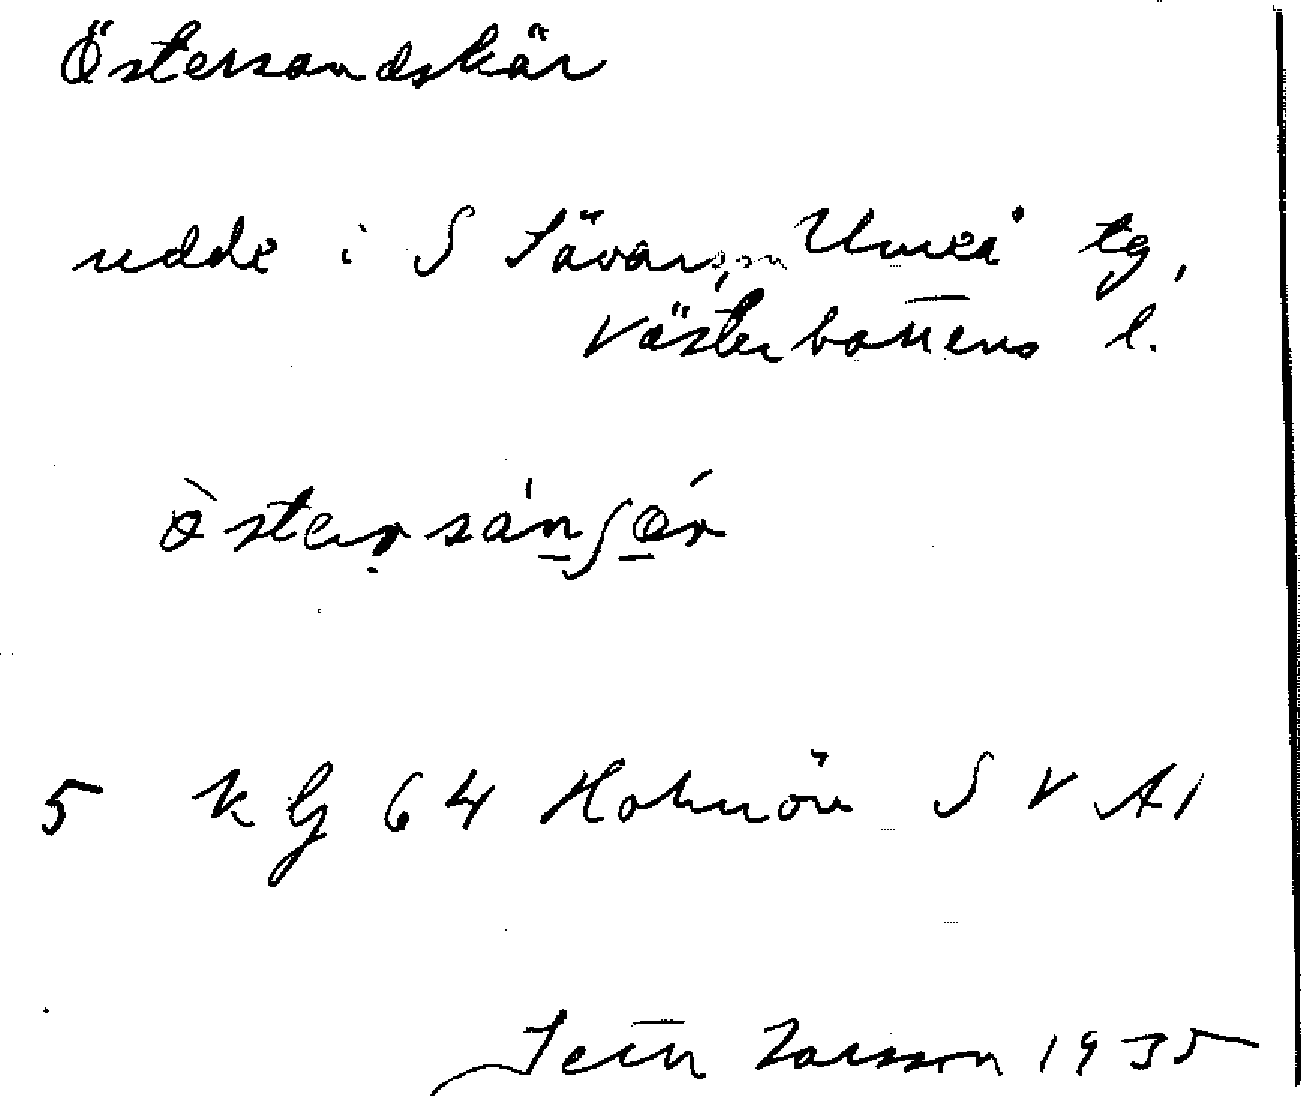 Östersandskär
udde i S Sävar sn Umeå tg,
Västerbottens l.
òstersánʃǿr
5 K G 64 Holmön S V A1
Larsson 1935